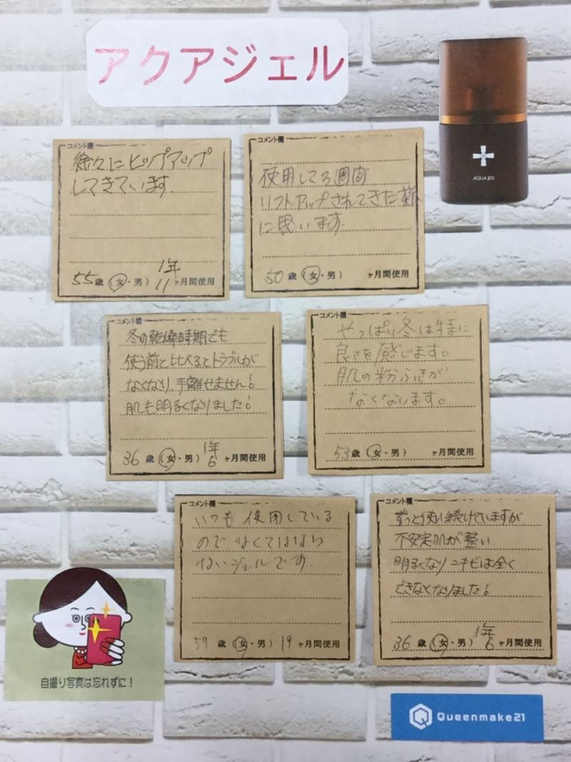 アクアジェル
AQUAJELL
コメント欄
徐々にヒップアップ
してきています。
55歳(女・男) 1年11ヶ月間使用
コメント欄
使用して3週間
リフトアップされてきた様
に思います。
50歳(女・男) ヶ月間使用
コメント欄
冬の乾燥時期でも
使う前と比べるとトラブルが
なくなり、手離せません!
肌も明るくなりました!
36歳(女・男) 1年6ヶ月間使用
コメント欄
やっぱり冬は特に
良さを感じます。
肌の粉ふきが
なくなります。
53歳(女・男) ヶ月間使用
コメント欄
いつも使用している
のでなくてはなら
ないジェルです。
59歳(女・男) 19ヶ月間使用
コメント欄
ずっと使い続けていますが
不安定肌が整い
明るくなりニキビは全く
できなくなりました!
36歳(女・男) 1年6ヶ月間使用
自撮り写真は忘れずに!
Queenmake21